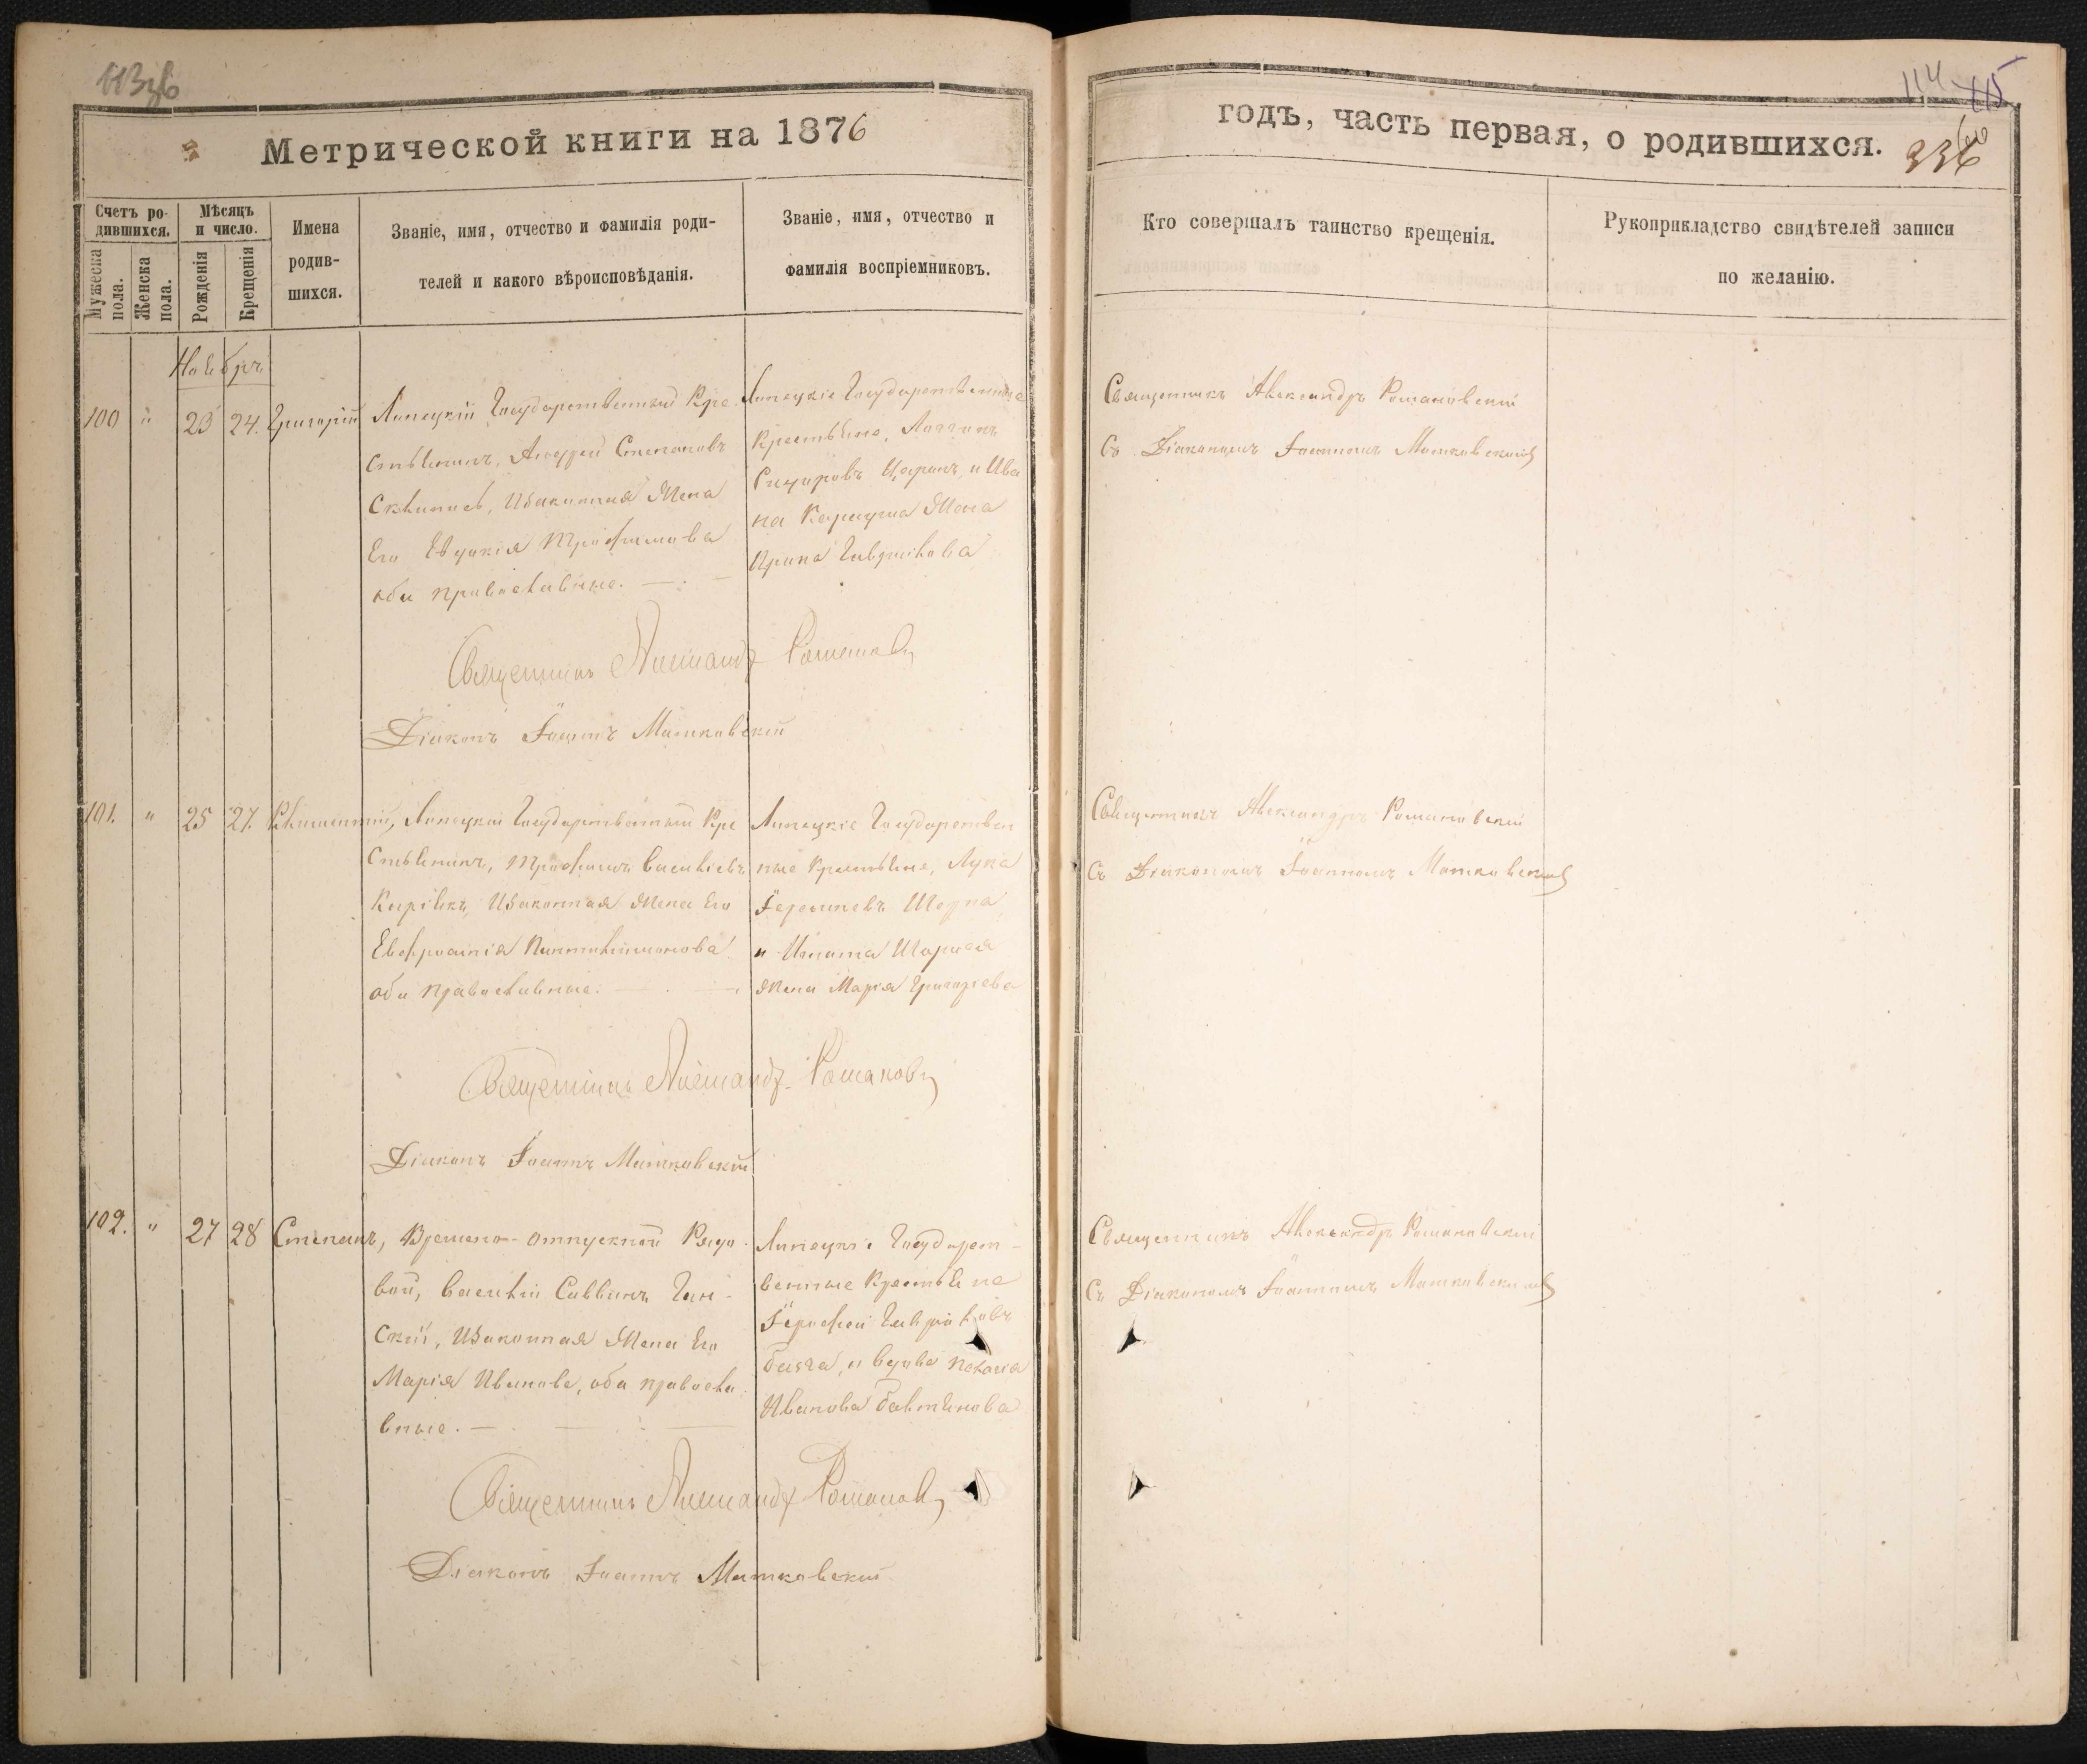 113 об
Метрической книги на 1876
Счетъ ро-
дившихся.
Мѣсяцъ
и число.
Мужеска
пола.
Женска
пола.
Рожденія
Крещенія
Имена
родив-
шихся.
Званіе, имя, отчество и фамилія роди-
телей и какого вѣроисповѣданія.
Званіе, имя, отчество и
фамилія воспріемниковъ.
Ноябрь
100 " 23 24. Григорій
Липецкій Государственный Кре-
стьянинъ, Андрей Степановъ
Изаконная Жена
Его Евдокія Трофимова
оба православные.
Липецкіе Государственные
Крестьяне, Логгинъ
Сидоровъ Царанъ, и Ива
на Жена
Ирина Гавріилова
Священникъ Александръ Романовск
Діаконъ Іоаннъ Матковскій
101. " 25 27. Климентій,
Липецкій Государственный Кре
стьянинъ, Трофимъ Васильевъ
Киріякъ, Изаконная Жена Его
Евфросинія Пантелимонова
оба православные.
Липецкіе Государствен
ные Крестьяне, Лука
и Игната
Жена Марія Григоріева
Священникъ Александръ Романовск
Діаконъ Іоаннъ Матковскій
102. " 27 28 Степанъ,
Времено-отпускной Рядо
вой, Василій Саввинъ Гин-
ской, Изаконная Жена Его
Марія Иванова, оба правосла
вные.
Липецкіе Государст-
венные Крестьяне
Іерофей Гавріиловъ
и вдова Пелагія
Иванова
Священникъ Александръ Романовск
Діаконъ Іоаннъ Матковскій
114 115
годъ, часть первая, о родившихся.
336
Кто совершалъ таинство крещенія.
Рукоприкладство свидѣтелей записи
по желанію.
Священникъ Александръ Романовскій
Съ Діакономъ Іоанномъ Матковскимъ
Священникъ Александръ Романовскій
Съ Діакономъ Іоанномъ Матковскимъ
Священникъ Александръ Романовскій
Съ Діакономъ Іоанномъ Матковскимъ